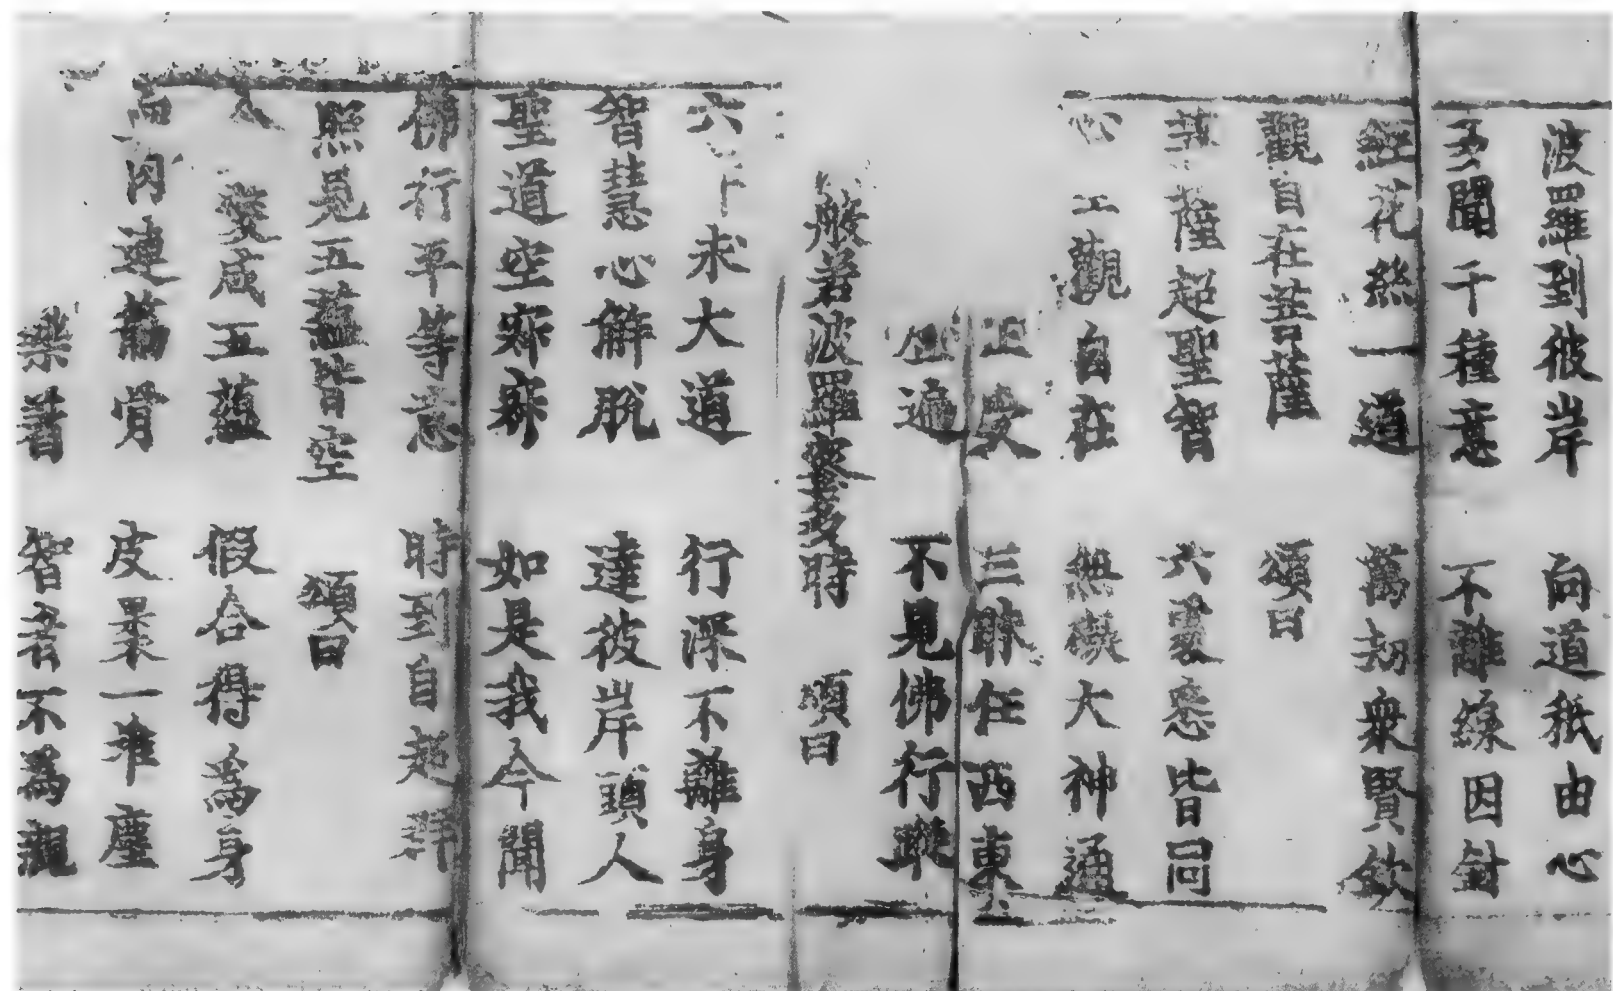 波羅到彼岸　向道祇由心
多聞千種意　不離線因針
經花絲一道　萬劫衆賢欽
觀自在菩薩　頌曰
菩薩超聖智　六處悉皆同
心　觀自在　無礙大神通
正受　三昧任西東
遍　不見佛行蹤
般若波羅蜜多時　頌曰
六　求大道　行深不離身
智慧心解脫　達彼岸頭人
聖道空寂寂　如是我今聞
佛行平等意　時到自超群
照見五蘊皆空　頌曰
愛成五蘊　假合得爲身
肉連筋骨　皮裏一堆塵
樂著　智者不爲親